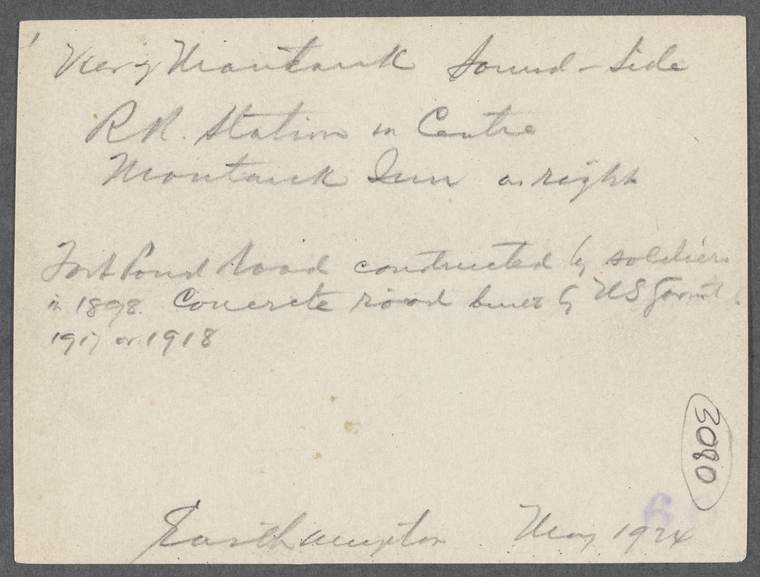 View of Montauk Sound-Side
R R. Station in Centre
Montauk Inn on right
Fort Pond Road constructed by soldiers
in 1898. Concrete road built by US Govmt
1917 or 1918
3080
Easthampton May 1924